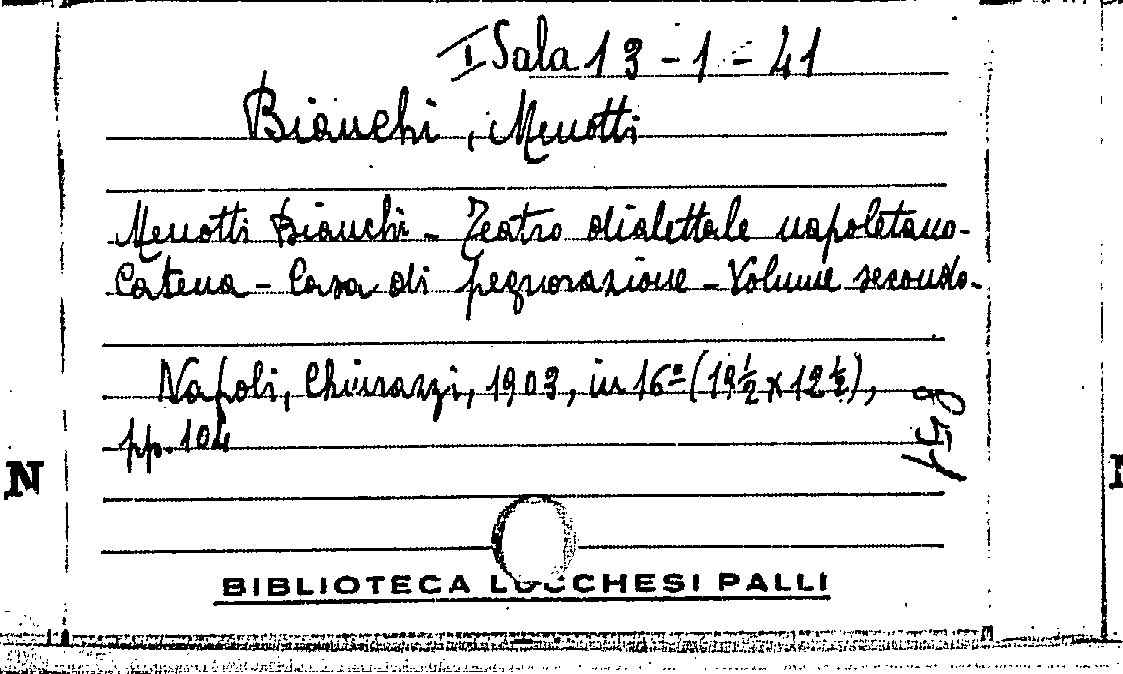 I Sala 13-1-41
Bianchi, Menotti
Menotti Bianchi - Teatro dialettale napoletano -
Catena - Casa di pegnorazione - Volume secondo -
Napoli, Chiurazzi, 1903, in 16º (19½ x 12½),
pp. 104
N
BIBLIOTECA LUCCHESI PALLI